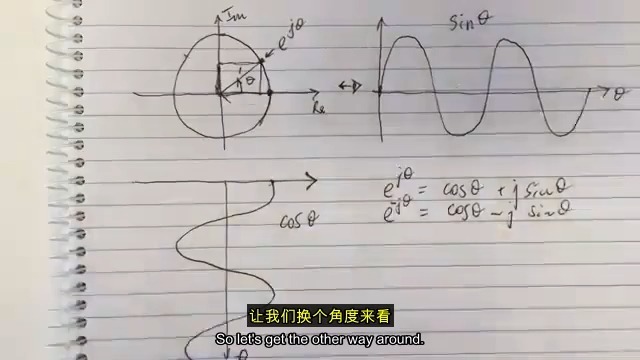 Im
e^{jθ}
θ
Re
↔
sinθ
θ
cosθ
θ
e^{jθ} = cosθ + j sinθ
e^{-jθ} = cosθ - j sinθ
让我们换个角度来看
So let's get the other way around.